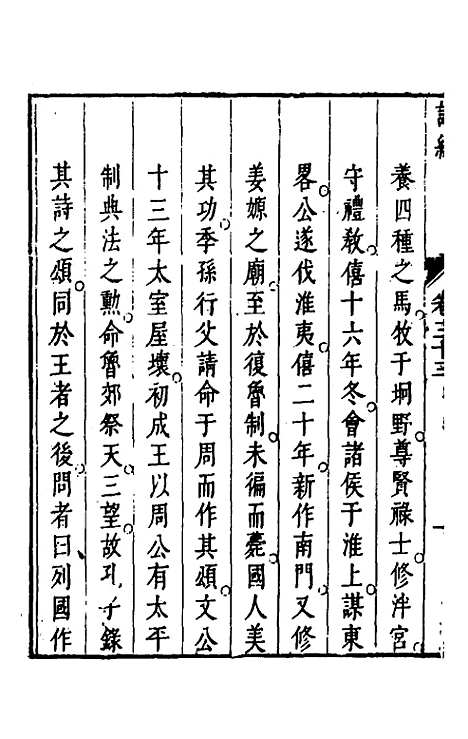 養四種之馬牧于坰野尊賢祿士修泮宮
守禮敎僖十六年冬會諸侯于淮上謀東
畧公遂伐淮夷僖二十年新作南門又修
姜嫄之廟至於復魯制未徧而薨國人美
其功季孫行父請命于周而作其頌文公
十三年太室屋壞初成王以周公有太平
制典法之勲命魯郊祭天三望故孔子錄
其詩之頌同於王者之後問者曰列國作